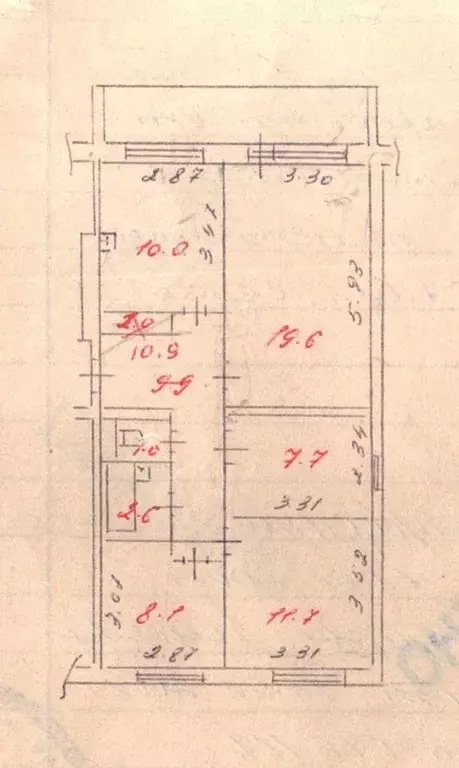 2.87
3.30
3.47
10.0
5.93
2.0
19.6
10.9
9.9
2.34
1.0
7.7
3.31
2.6
3.52
3.07
8.1
11.7
2.87
3.31